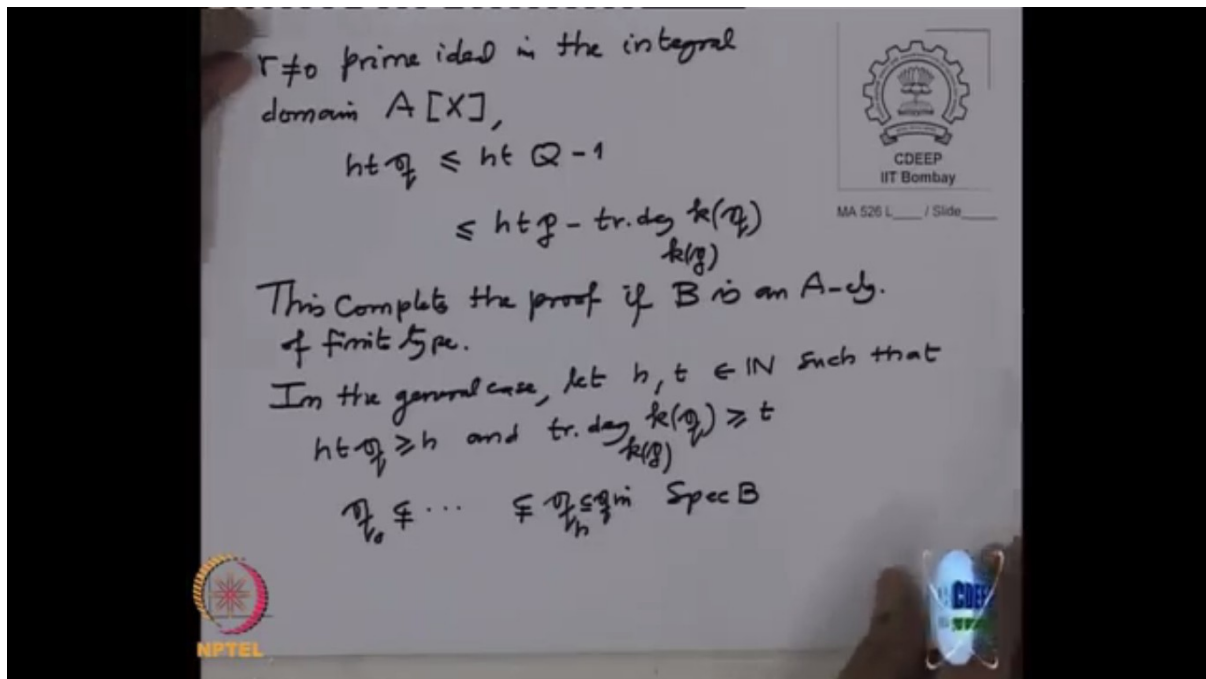 r≠0 prime ideal in the integral
domain A[X],
ht 𝔮 ≤ ht Q - 1
≤ ht 𝔭 - tr.deg k(𝔮)
k(𝔭)
This Complets the proof if B is an A-alg.
of finit type.
In the general case, let h, t ∈ IN such that
ht 𝔮 ≥ h and tr.deg k(𝔮) ≥ t
k(𝔭)
𝔮₀ ⊊ ⋯ ⊊ 𝔮ₕ ⊆ 𝔮 in Spec B
CDEEP
IIT Bombay
MA 526 L____ / Slide_____
NPTEL
CDEEP